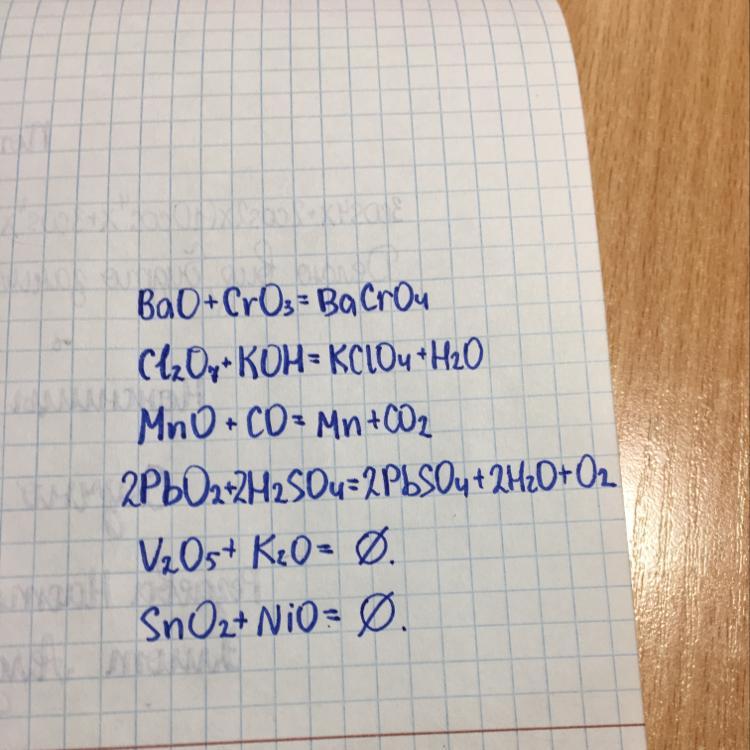 BaO+CrO₃=BaCrO₄
Cl₂O₇+KOH=KClO₄+H₂O
MnO+CO=Mn+CO₂
2PbO₂+2H₂SO₄=2PbSO₄+2H₂O+O₂
V₂O₅+K₂O=∅.
SnO₂+NiO=∅.